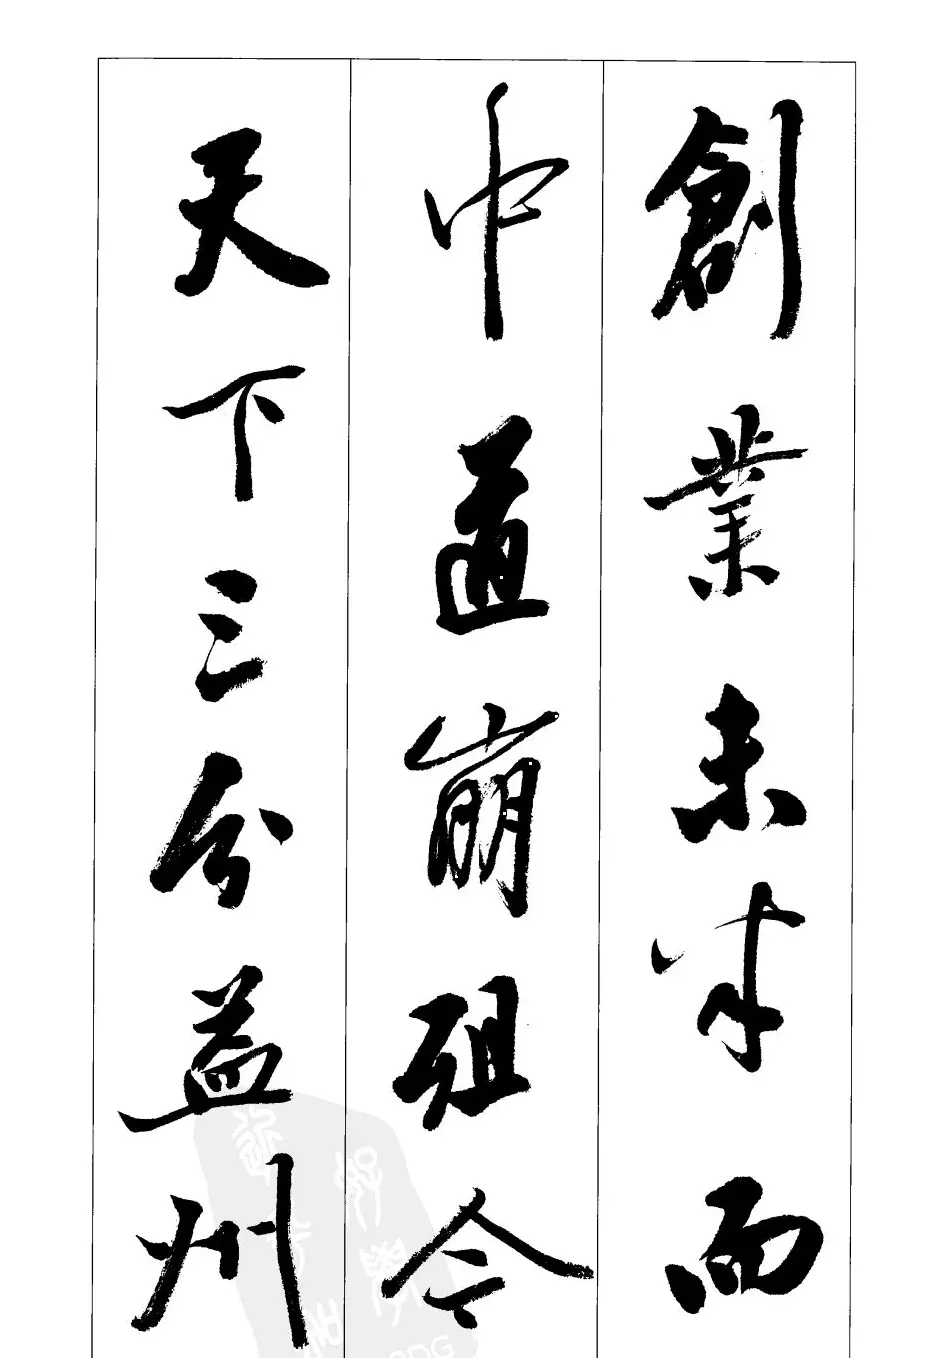 創業未半而
中道崩殂今
天下三分益州